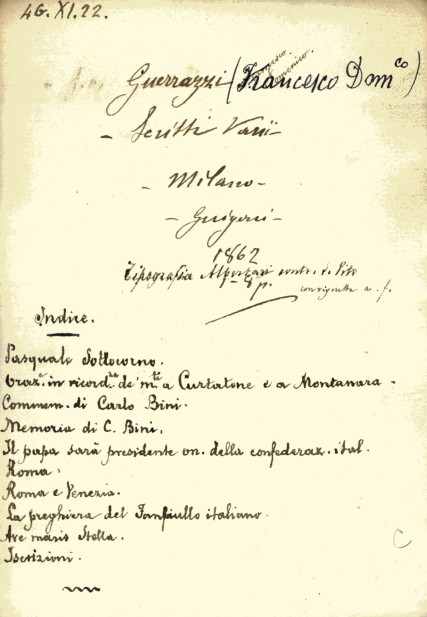 4G. XI. 22.
Guerrazzi (Francesco Dom.co)
Francesco
Domenico.
- Scritti Varii -
- Milano -
- Guigoni -
1862
Tipografia
con vignetta a. f.
Indice.
Pasquale Sottocorno.
Oraz.e in ricord.za de' m.ti a Curtatone e a Montanara.
Commem. di Carlo Bini.
Memoria di C. Bini.
Il papa sarà presidente on. della confederaz. ital.
Roma.
Roma e Venezia.
La preghiera del Fanfullo italiano.
Ave maris Stella.
Iscrizioni.
C